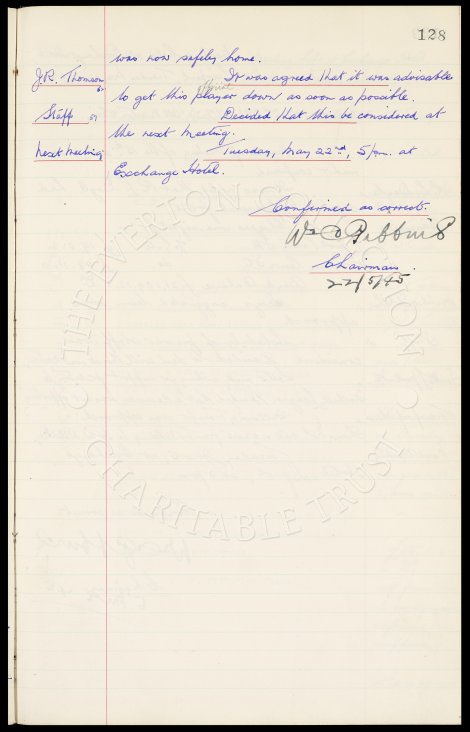 128
was now safely home.
J.R. Thomson
It was agreed that it was advisable
to get this player down as soon as possible.
Staff
Decided that this be considered at
the next meeting.
Next meeting
Tuesday, May 22nd, 5 p.m. at
Exchange Hotel.
Confirmed as correct.
Wm C Gibbins
Chairman.
22/5/45
THE EVERTON COLLECTION
CHARITABLE TRUST